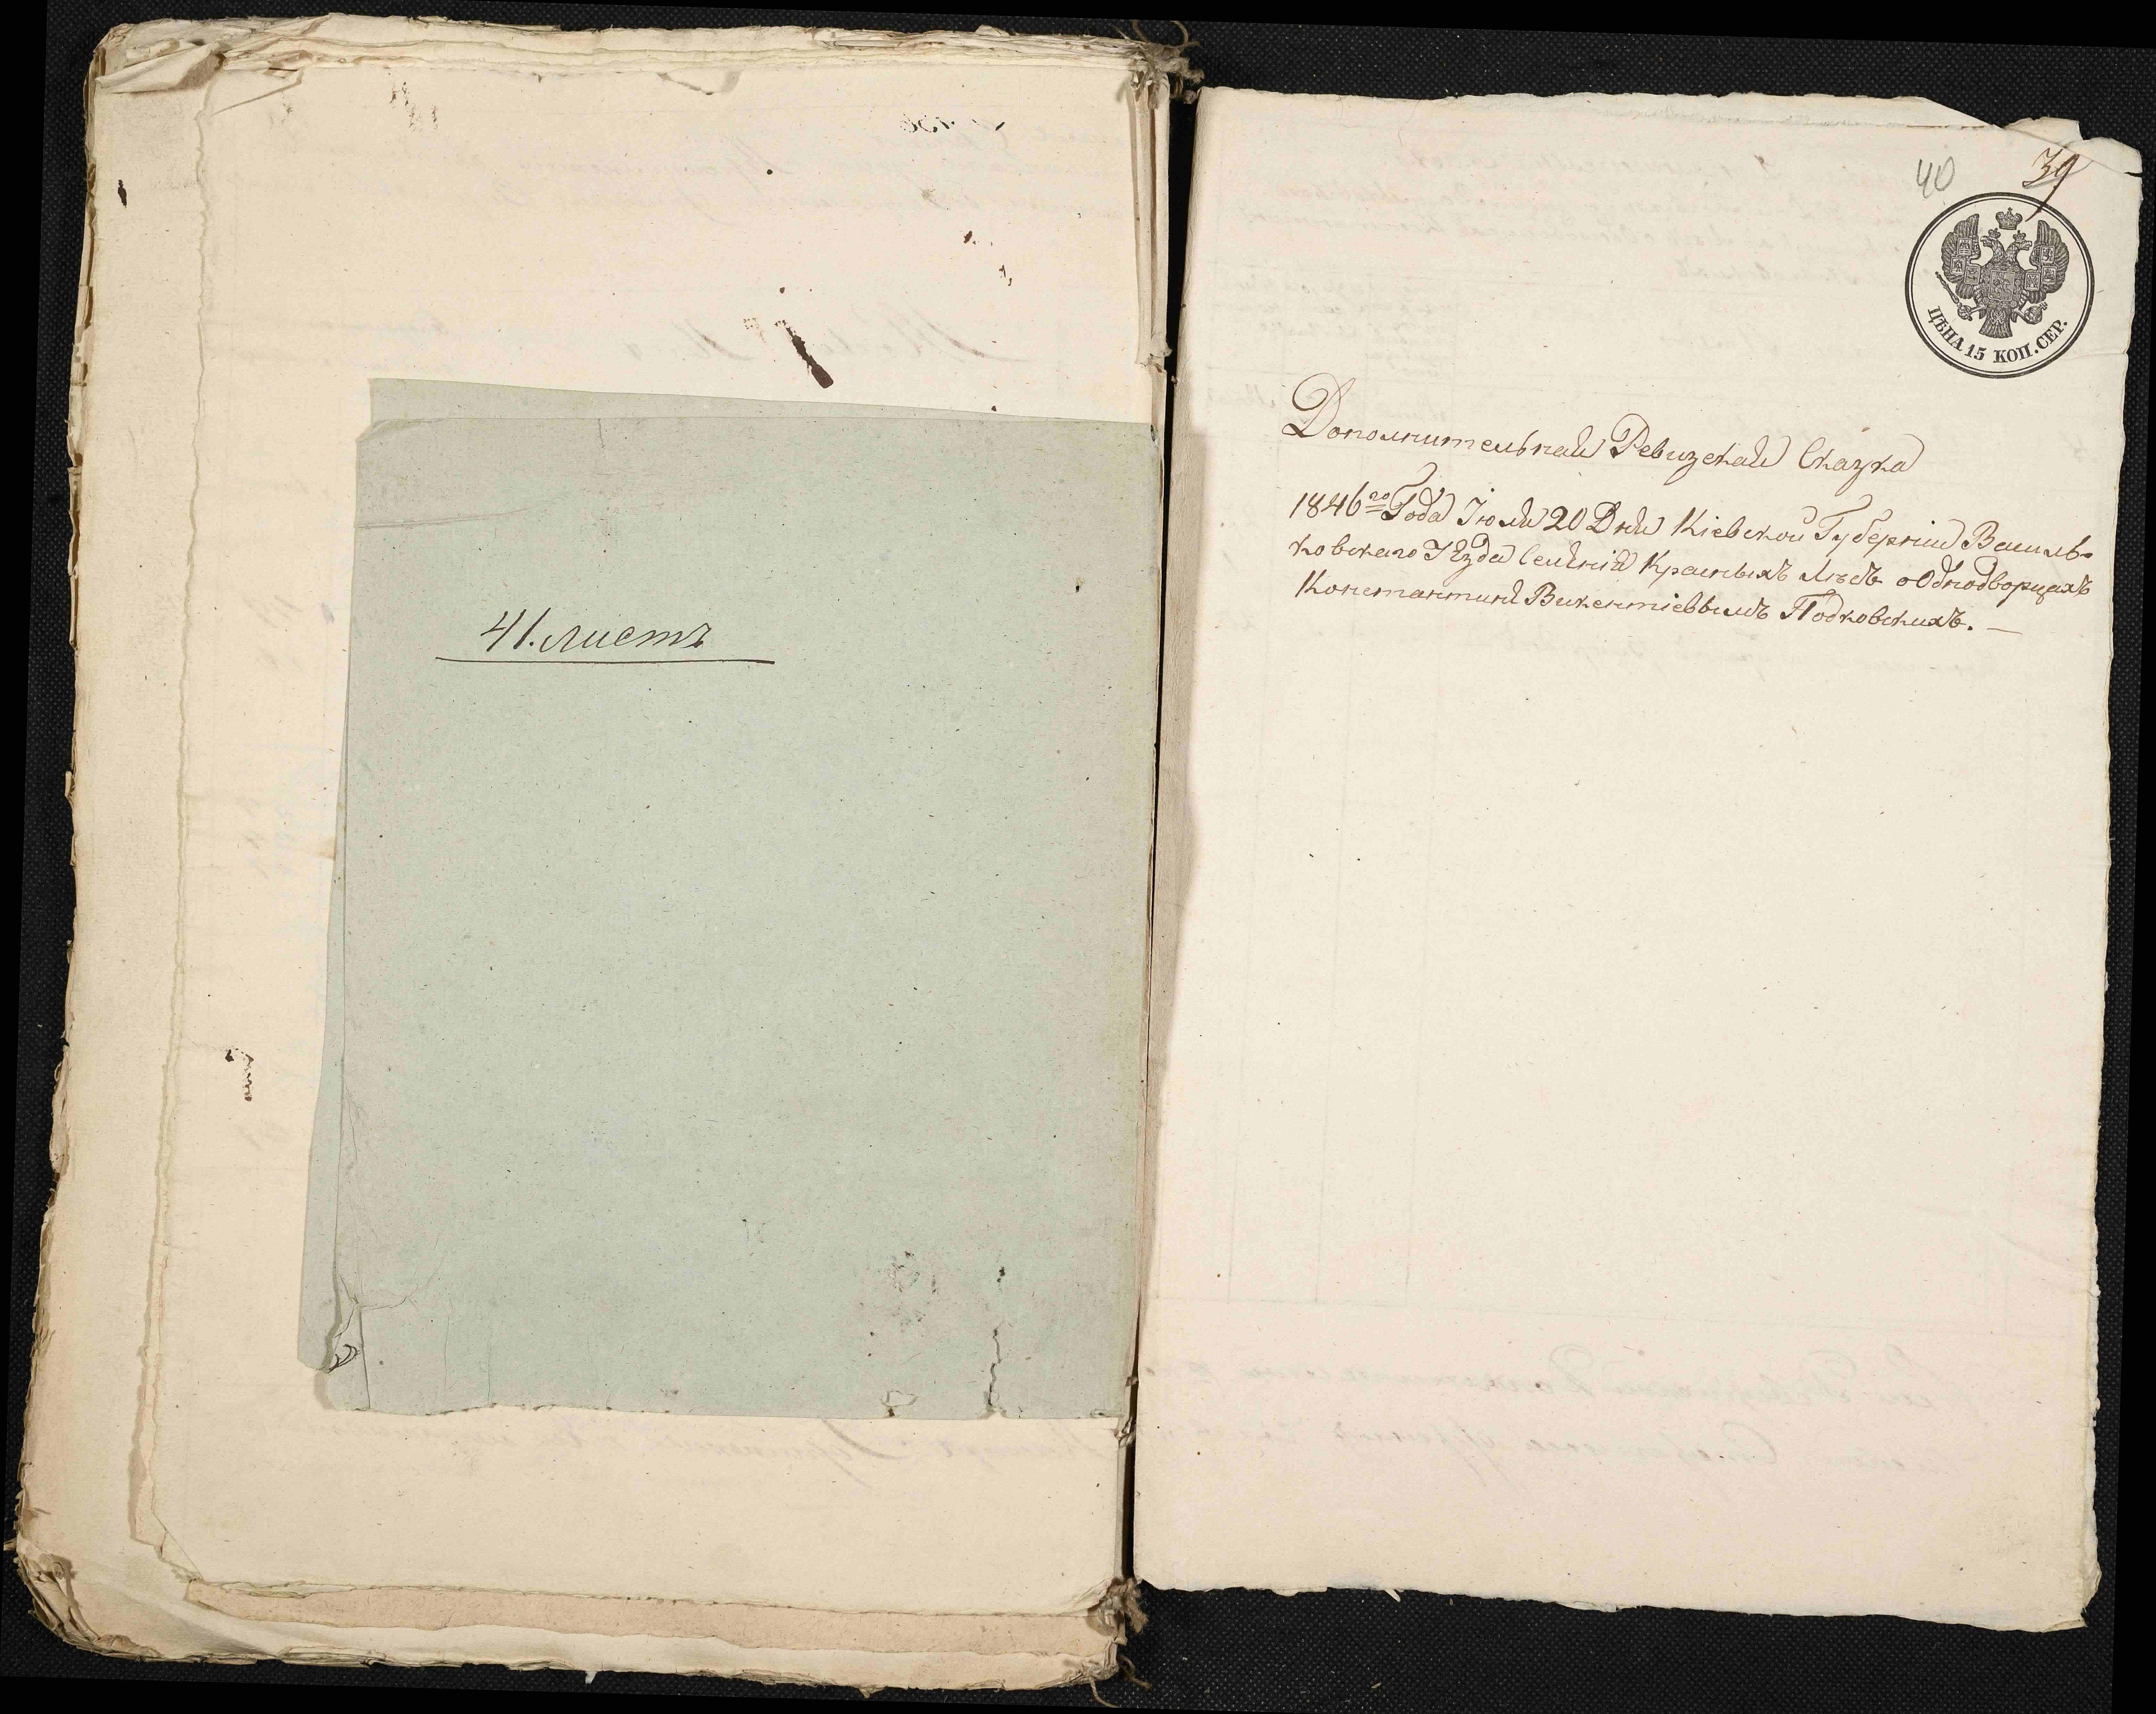 41. листъ
40
39
ЦѢНА 15 КОП. СЕР.
Дополнительная Ревизская Сказка
1846го Года Іюля 20 Дня Кіевской Губерніи Василь-
ковскаго УѢзда Селенія Красныхъ Лѣсъ о Однодворцахъ
Константинѣ Викентіевымъ Подковскихъ.